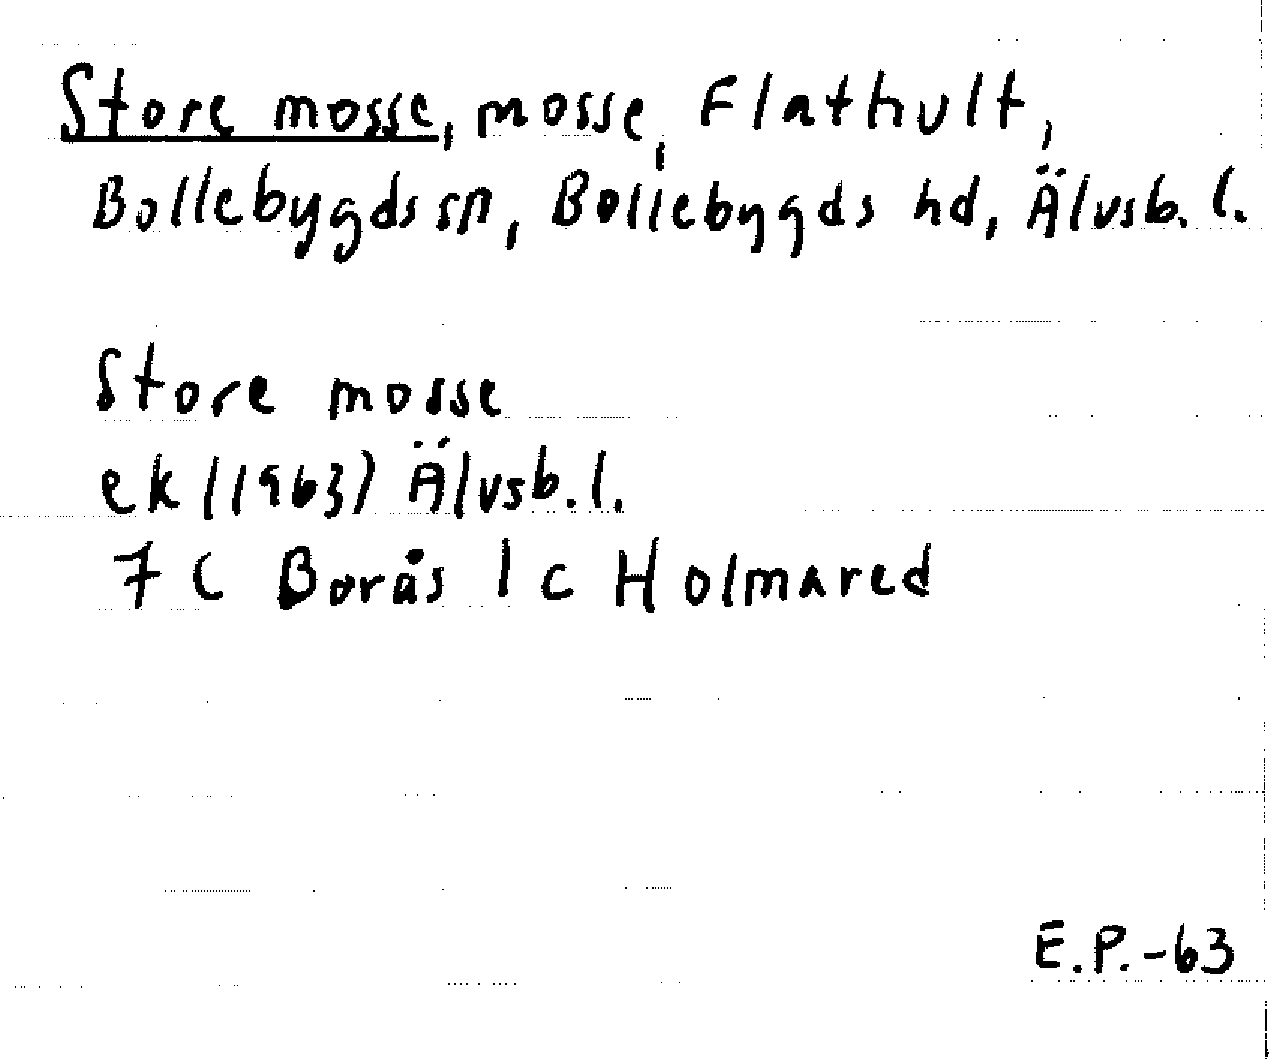 Store mosse, mosse, Flathult,
Bollebygds sn, Bollebygds hd, Älvsb. l.
Store mosse
ek (1963) Älvsb. l.
7 C Borås 1 c Holmared
E.P.-63